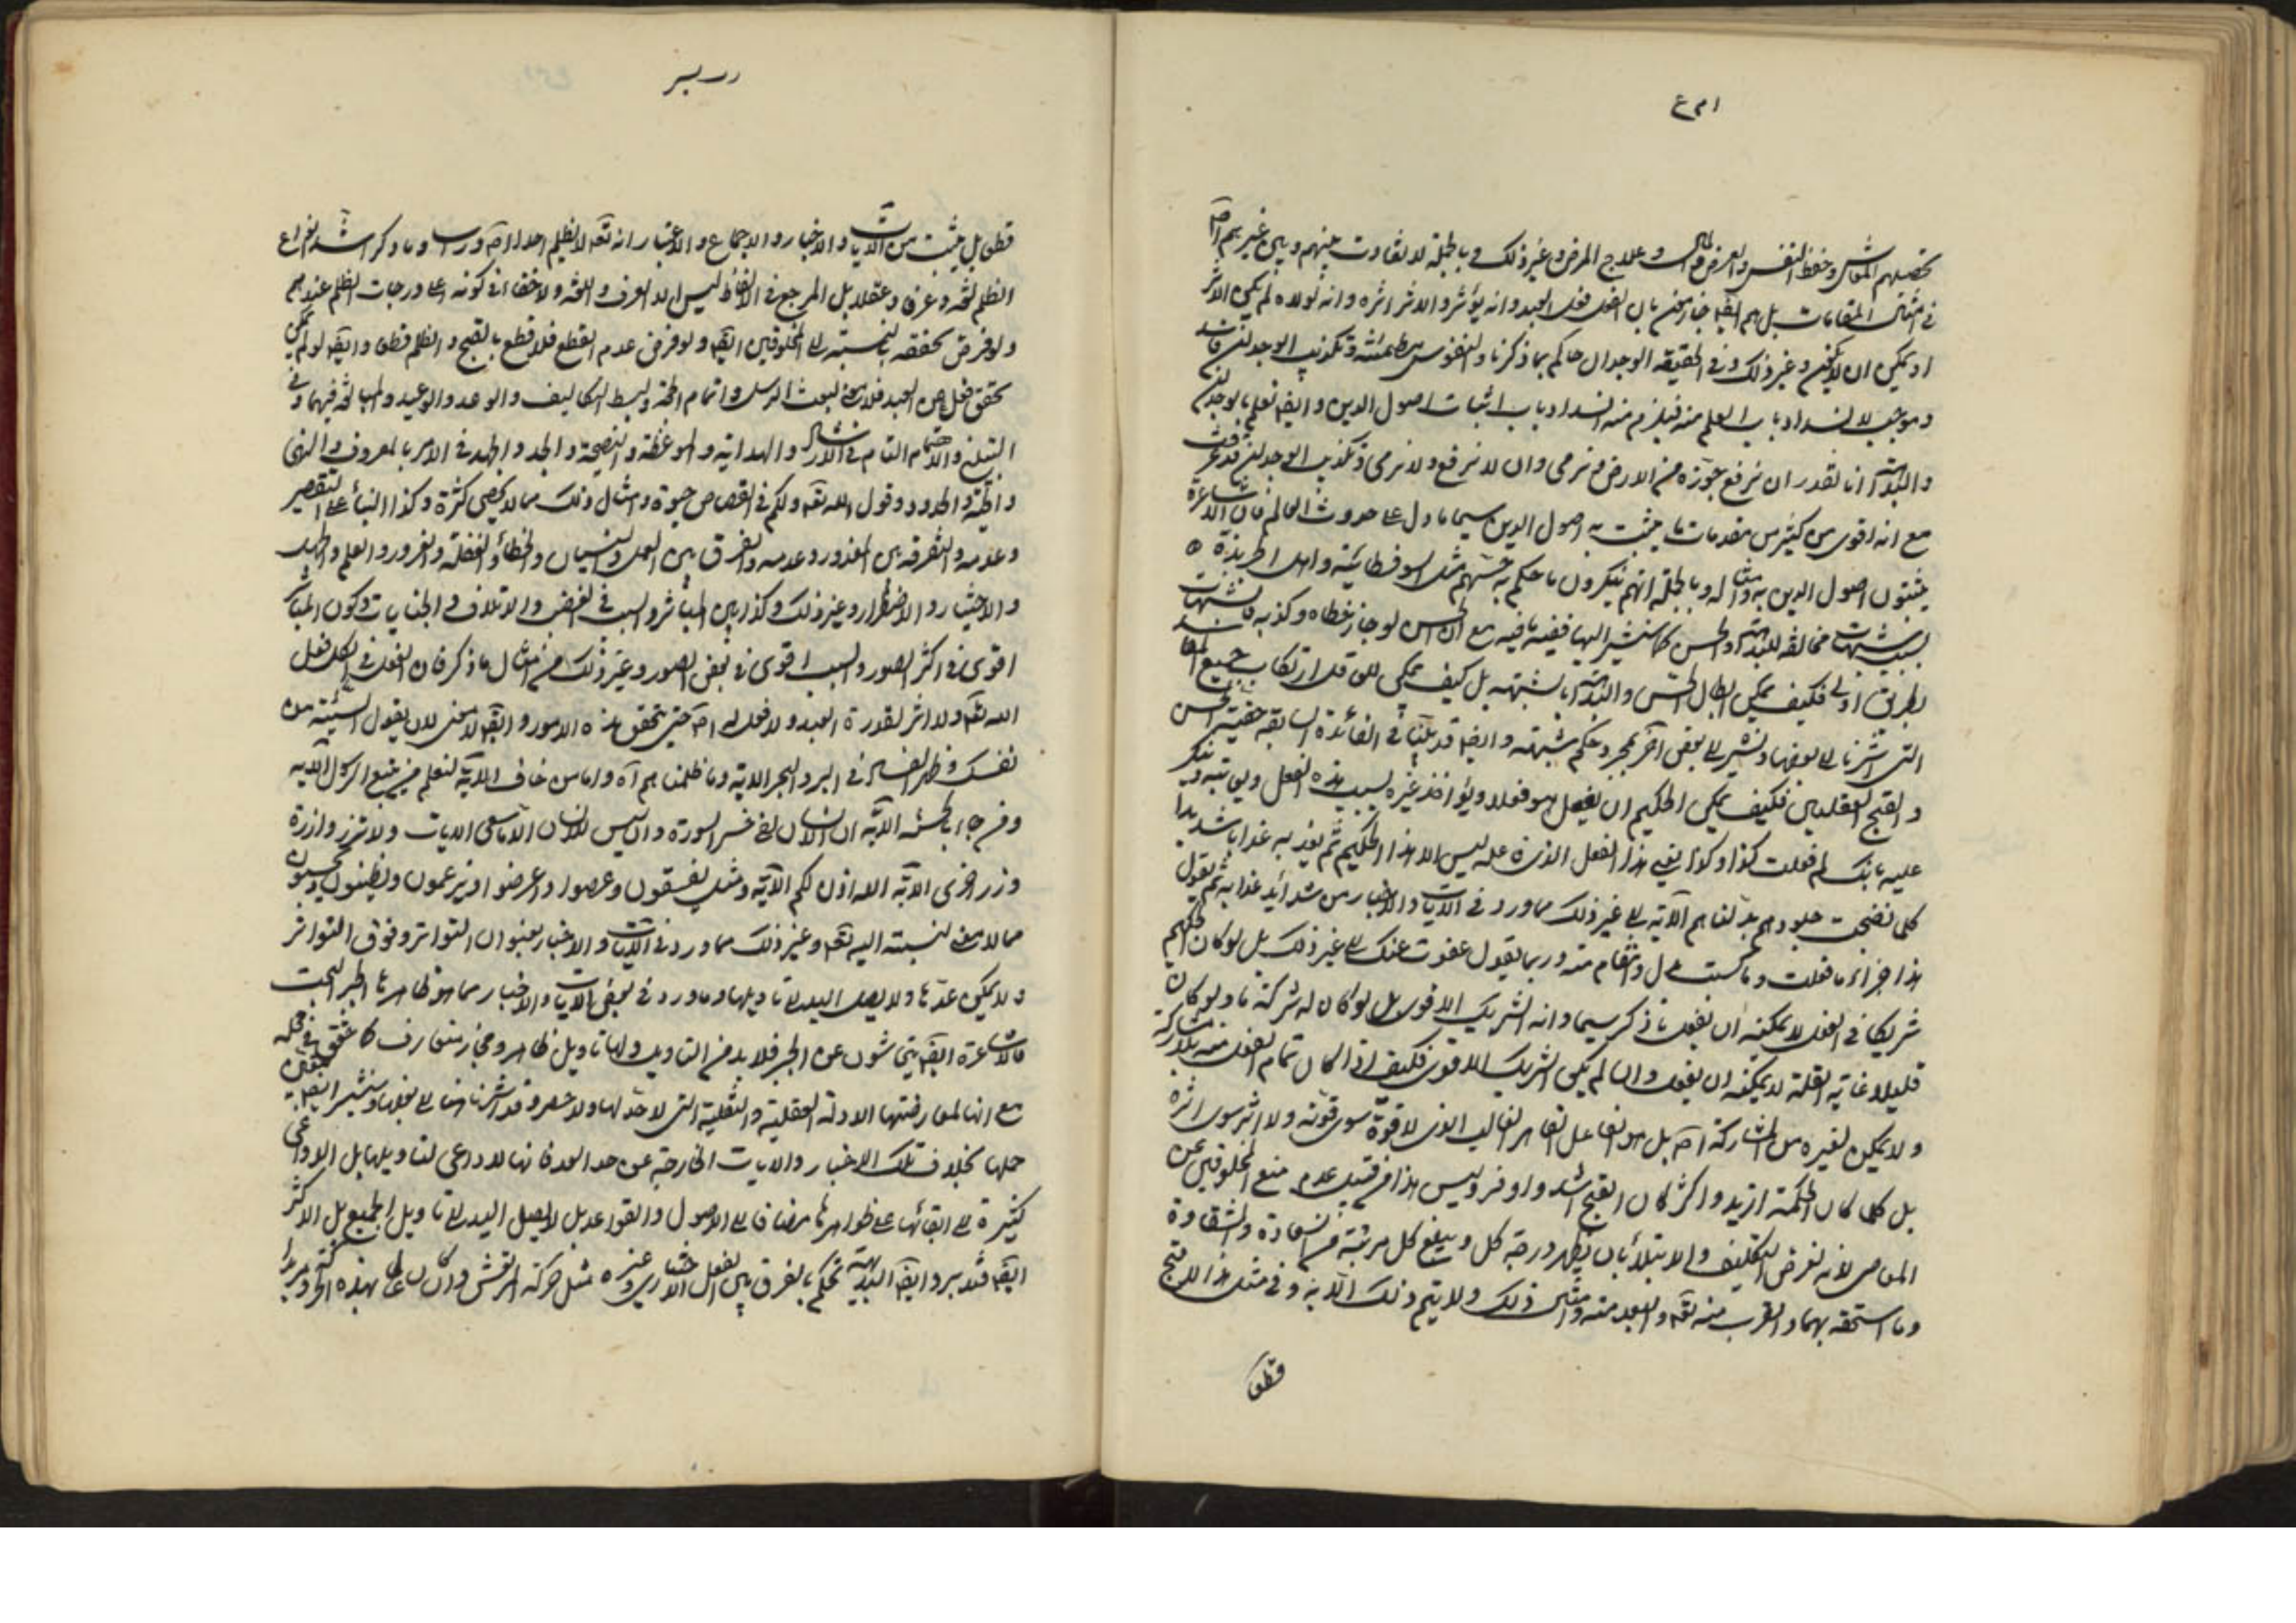 تحصيلهم المعاش وحفظ النفس والعرض والمال وعلاج المرض وغير ذلك وبالجملة لا تفاوت بينهم وبين غيرهم اصلا
في امثال المقامات بل هم ايضا جازمون بان الفعل فعل العبد وانه يؤثر والاثر اثره وانه لولاه لم يكن الاثر
او يمكن ان لا يكون وغير ذلك وفي الحقيقة الوجدان حاكم بما ذكرنا والنفوس مطمئنة وتكذيب الوجدان فاسد
وموجب لانسداد باب العلم منه فيلزم منه انسداد باب اثبات اصول الدين وايضا نعلم بالوجدان
والبداهة انا نقدر ان نرفع جوزة من الارض ونرمى وان لا نرفع ولا نرمى وتكذيب الوجدان قد عرفت
مع انه اقوى من كثير من مقدمات ما يثبت به اصول الدين سيما ما دل على حدوث العالم فان الاشاعرة
يثبتون اصول الدين به وامثاله وبالجملة انهم ينكرون ما حكم به حسهم مثل السوفسطائية واهل
بسبب شبهات مخالفة للبداهة والحس كما سنشير اليها ففيه ما فيه مع ان الحس لو جاز خطاه وكذبه فالشبهات
بطريق اولى فكيف يمكن ابطال الحس والبداهة بالشبهة بل كيف يمكن للعاقل ارتكاب جميع المفاسد
التي اشرنا الى بعضها ونشير الى بعض آخر بمجرد حكم شبهته وايضا قد بينا في الفائدة السابقة حقية الحسن
والقبح العقليين فكيف يمكن الحكيم ان يفعل هو فعلا ويؤاخذ غيره بسبب هذه الفعل ويعاتبه وينكر
عليه بانك لم فعلت كذا وكذا يعنى هذا الفعل الذى فاعله ليس الا هذا الحكيم ثم يعذبه عذابا شديدا
كلما نضجت جلودهم بدلناهم الآية الى غير ذلك مما ورد في الآيات والاخبار من شدائد عذابه ثم يقول
هذا جزاء ما فعلت وما كسبت وانتقام منه وربما يقول عفوت عنك الى غير ذلك بل لو كان الحكيم
شريكا في الفعل لا يمكنه ان يفعل ما ذكر سيما وانه الشريك الاقوى بل لو كان له شركة ما ولو كان
قليلا غاية القلة لا يمكنه ان يفعل وان لم يكن الشريك الاقوى فكيف اذا كان تمام الفعل منه بلا مشاركة
ولا يمكن لغيره من المشاركة اصلا بل هو الفاعل القاهر الغالب الذى لا قوة سوى قوته ولا اثر سوى اثره
بل كلما كان الحكمة ازيد واكثر كان القبح اشد واوفر وليس هذا من قبيل عدم منع المخلوقين عن
المعاصى لانه لغرض التكليف والابتلاء بان يظهر درجة كل ويبلغ كل مرتبة من السعادة والشقاوة
وما استحقه بهما والقرب منه تعالى والبعد منه وامثال ذلك ولا يتم ذلك الا به وفي مثل هذا لا قبح
قطعا
قطعا بل يثبت من الآيات والاخبار والاجماع والاعتبار انه تعالى لا يظلم احدا اصلا وراسا وما ذكر اشد انواع
الظلم لغة وعرفا وعقلا بل المرجع في الالفاظ ليس الا العرف واللغة ولا خفاء في كونه اعلى درجات الظلم عندهم
ولو فرض تحققه بالنسبة الى المخلوقين ايضا ولو فرض عدم القطع فلا قطع بالقبح والظلم قطعا وايضا لو لم يكن
تحقق فعل من العبد فلا معنى لبعث الرسل واتمام الحجة وبسط التكاليف والوعد والوعيد والمبالغة فيهما وفي
التبليغ والاهتمام التام في الارشاد والهداية والموعظة والنصيحة والجد والجهد في الامر بالمعروف والنهى
والحدود وقول الله تعالى ولكم في القصاص حيوة وامثال ذلك مما لا يحصى كثرة وكذا البناء على التقصير
وعدمه والتفرقة بين المعذور وعدمه والفرق بين العمد والنسيان والخطأ والغفلة والغرور والعلم والجهل
والاختيار والاضطرار وغير ذلك وكذا بين المباشر والسبب في الغصب والاتلاف والجنايات وكون المباشر
اقوى في اكثر الصور والسبب اقوى في بعض الصور وغير ذلك من امثال ما ذكر فان الفعل في الكل فعل
الله تعالى ولا اثر لقدرة العبد ولا فعل له اصلا حتى يتحقق هذه الامور وايضا لا معنى لان يقول السيئة من
نفسك وظهر الفساد في البر والبحر الآية وما ظلمناهم آه واما من خاف الآية لنعلم من يتبع الرسول الآية
ومن جاء بالحسنة الآية ان الانسان لفى خسر السورة وان ليس للانسان الا ما سعى الآيات ولا تزر وازرة
وزر اخرى الآية الله اذن لكم الآية ومثل يفسقون وعصوا واعرضوا ويزعمون ويظنون ويحسبون
مما لا معنى لنسبته اليه تعالى وغير ذلك مما ورد في الآيات والاخبار بعنوان التواتر وفوق التواتر
ولا يمكن عدها ولا يصل اليد الى تاويلها وما ورد في بعض الآيات والاخبار مما هو ظاهرها الجبر البحت
فالاشاعرة ايضا يتحاشون عن الجبر فلا بد من التاويل ولها تاويل ظاهر ومجاز متعارف كما حقق في محله
مع انها لمعارضتها الادلة العقلية والنقلية التى لا حد لها ولا حصر وقد اشرنا هنا الى بعضها وسنشير ايضا الى بعض
حملها بخلاف تلك الاخبار والآيات الخارجة عن حد العد فانها لا داعى لتاويلها بل الدواعى
كثيرة الى ابقائها على ظواهرها مضافا الى الاصول والقواعد بل لا يصل اليد الى تاويل الجميع بل الاكثر
ايضا فتدبر وايضا البداهة تحكم بالفرق بين الفعل الاختيارى وغيره مثل حركة المرتعش وان كان